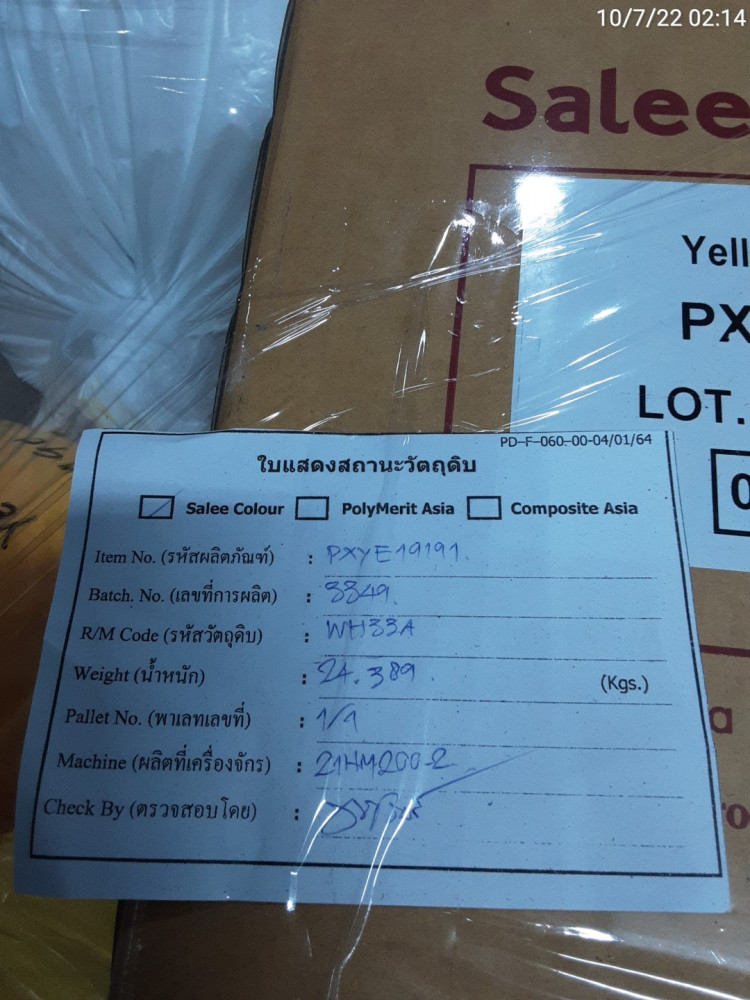 10/7/22 02:14
Salee
Yell
PX
LOT.
0
PD-F-060-00-04/01/64
ใบแสดงสถานะวัตถุดิบ
Salee Colour PolyMerit Asia Composite Asia
Item No. (รหัสผลิตภัณฑ์) : PXYE19191.
Batch. No. (เลขที่การผลิต) : 3349.
R/M Code (รหัสวัตถุดิบ) : WH33A
Weight (น้ำหนัก) : 24.389. (Kgs.)
Pallet No. (พาเลทเลขที่) : 1/1
Machine (ผลิตที่เครื่องจักร) : 21HM200-2
Check By (ตรวจสอบโดย) :
a
ro